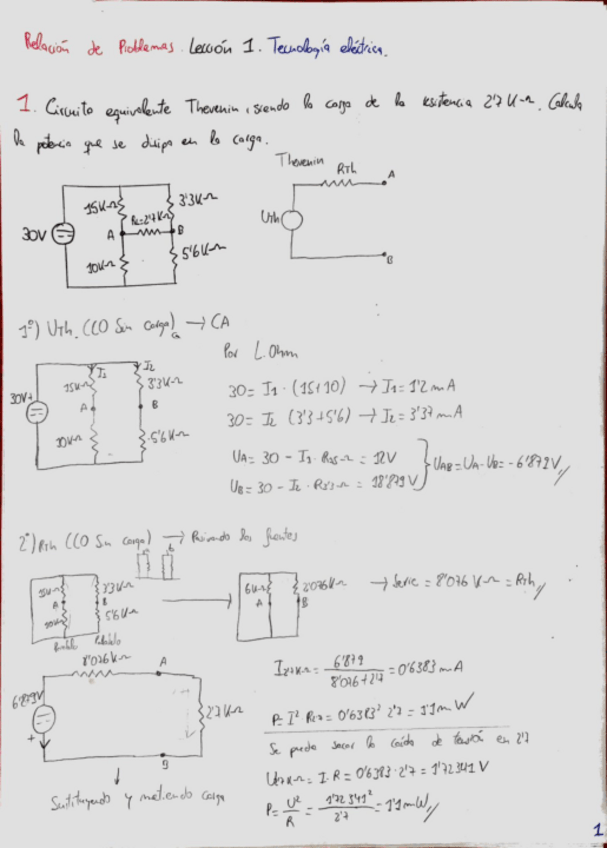 Relación de Problemas. Lección 1. Tecnología eléctrica.
1. Circuito equivalente Thevenin, siendo la carga de la resistencia 2'7 K-Ω. Calcula
la potencia que se disipa en la carga.
Thevenin
RTh
A
15K-Ω
3'3K-Ω
RL=2'7K-Ω
30V
A
B
Uth
10K-Ω
5'6K-Ω
B
1º) UTh. (CO Sin carga) → CA
Por L.Ohm
I1
I2
15K-Ω
3'3K-Ω
30V
A
B
10K-Ω
5'6K-Ω
30 = I1 · (15+10) → I1 = 1'2 mA
30 = I2 (3'3+5'6) → I2 = 3'37 mA
UA = 30 - I1 · R15-Ω = 12V
UB = 30 - I2 · R3'3-Ω = 18'879V
UAB = UA - UB = -6'879V //
2º) RTh (CO Sin carga) → Pasivando las fuentes
15K-Ω
3'3K-Ω
A
B
10K-Ω
5'6K-Ω
Paralelo
Paralelo
6K-Ω
2'076K-Ω
A
B
→ Serie = 8'076 K-Ω = RTh //
8'076K-Ω
A
6'879V
+
2'7K-Ω
B
Sustituyendo y metiendo carga
I2'7K-Ω = 6'879 / 8'076+2'7 = 0'6383 mA
P = I² · R2'7 = 0'6383² · 2'7 = 1'1 mW
Se puede sacar la caída de tensión en 2'7
U2'7K-Ω = I · R = 0'6383 · 2'7 = 1'72341 V
P = U² / R = 1'72341² / 2'7 = 1'1 mW //
1